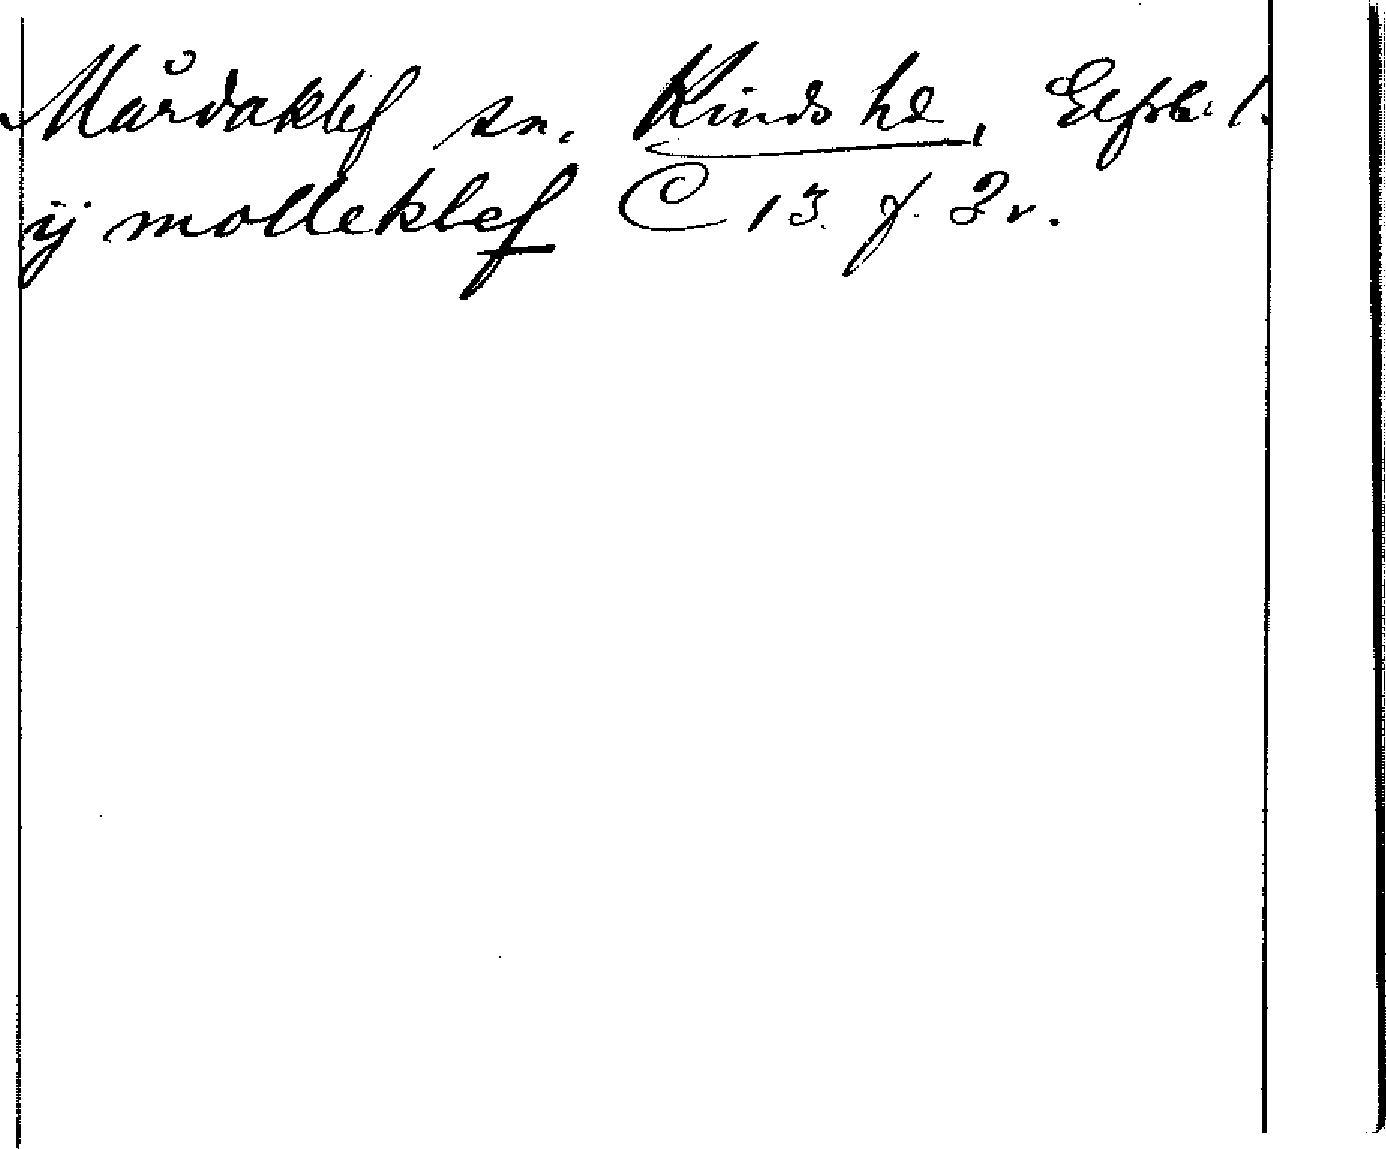 Mårdaklef sn. Kinds hd, Elfsb. l.
ij molleklef C 13 f. 2 v.